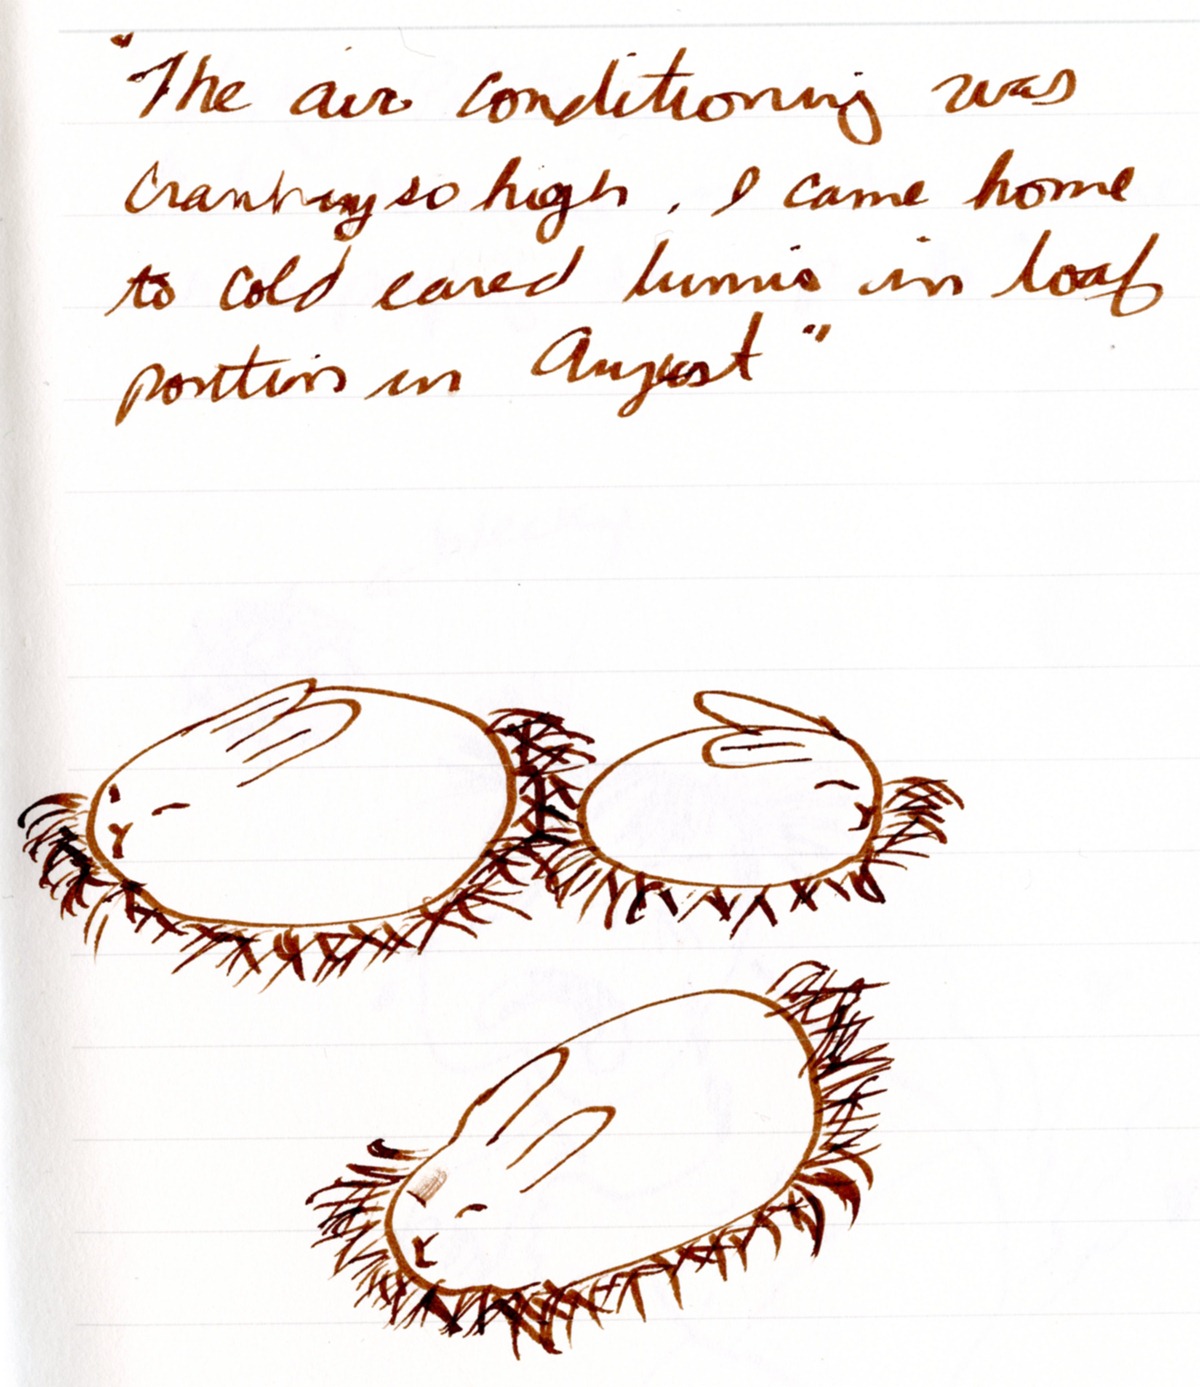 "The air conditioning was
so high, I came home
to cold eared in loaf
position in August"